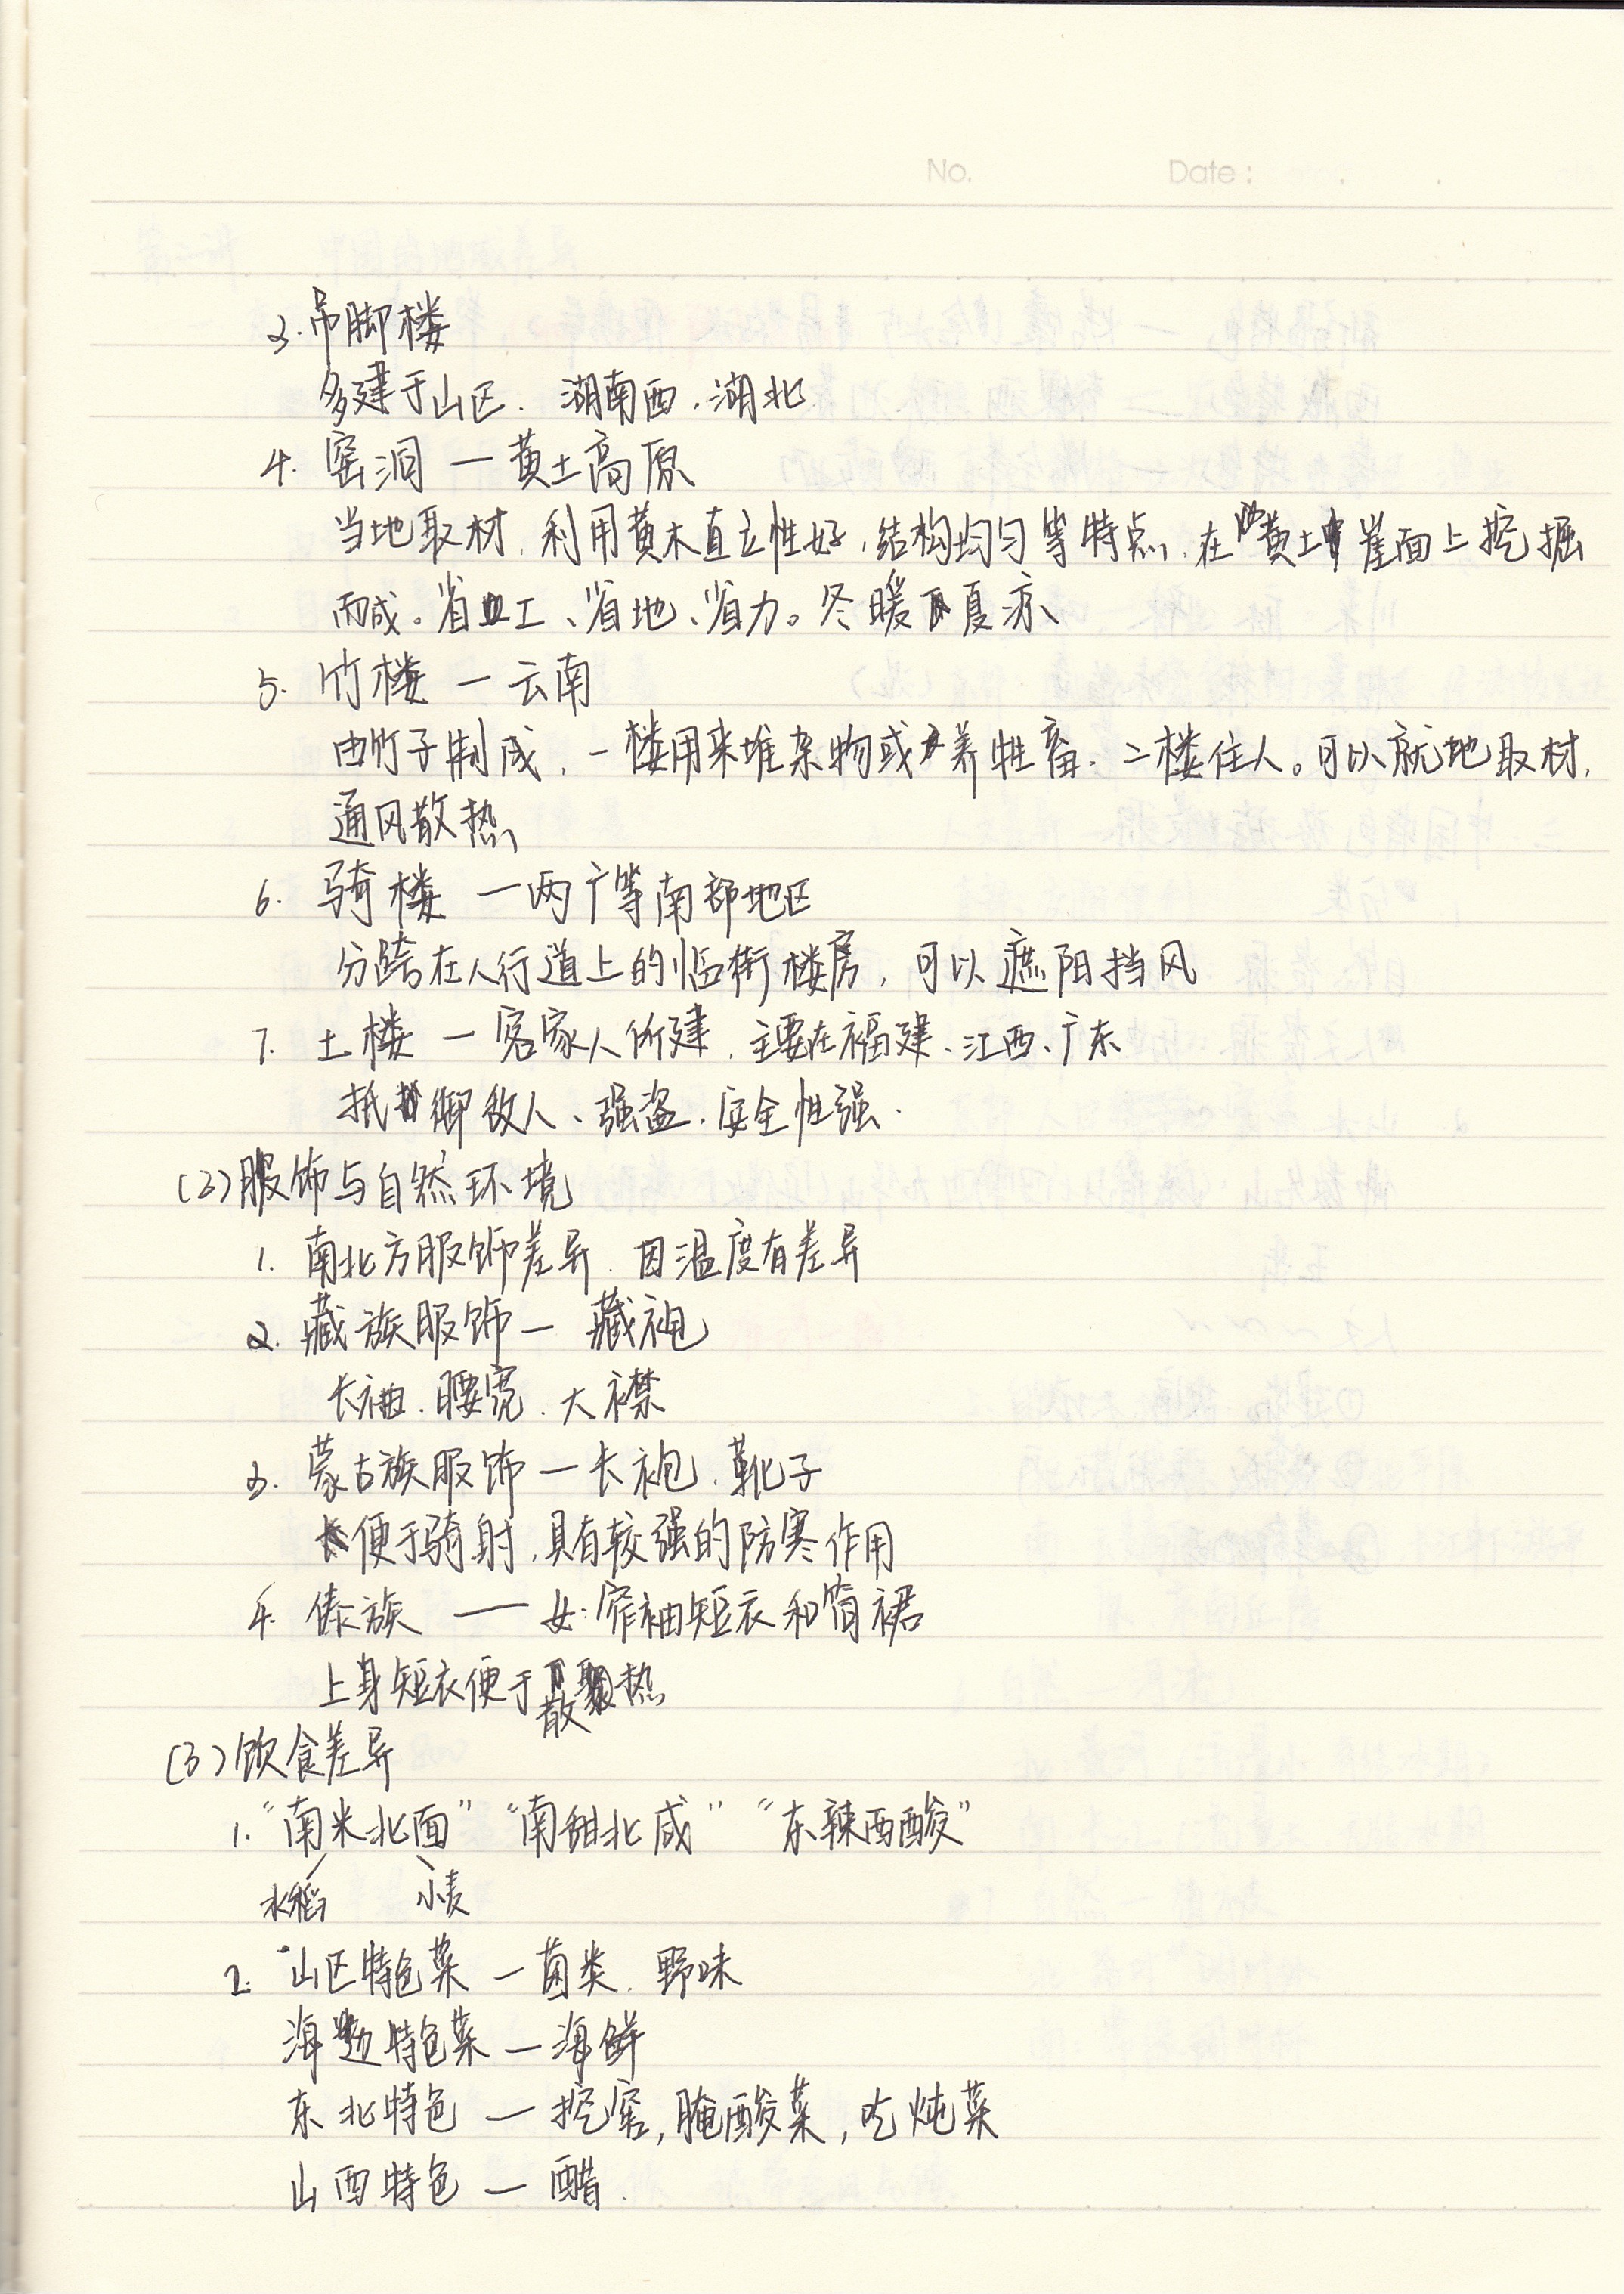 No. Date:
3. 吊脚楼
多建于山区. 湖南西,湖北
4. 窑洞 — 黄土高原
当地取材, 利用黄木直立性好,结构均匀等特点,在黄土崖面上挖掘
而成。省工、省地、省力。冬暖夏凉
5. 竹楼 — 云南
由竹子制成, 一楼用来堆杂物或养牲畜, 二楼住人。可以就地取材,
通风散热
6. 骑楼 — 两广等南部地区
分跨在人行道上的临街楼房, 可以遮阳挡风
7. 土楼 — 客家人所建, 主要在福建、江西、广东
抵御敌人、强盗, 安全性强.
(2)服饰与自然环境
1. 南北方服饰差异. 因温度有差异
2. 藏族服饰 — 藏袍
长袖. 腰宽. 大襟
3. 蒙古族服饰 — 长袍. 靴子
便于骑射,具有较强的防寒作用
4. 傣族 — 女:窄袖短衣和筒裙
上身短衣便于散热
(3)饮食差异
1. “南米北面” “南甜北咸” “东辣西酸”
水稻 小麦
2. 山区特色菜 — 菌类. 野味
海边特色菜 — 海鲜
东北特色 — 挖窖, 腌酸菜, 吃炖菜
山西特色 — 醋.